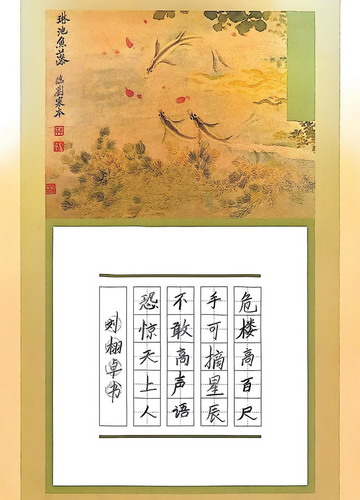 琳池魚藻
臨劉寀本
危楼高百尺
手可摘星辰
不敢高声语
恐惊天上人
刘栩卓书